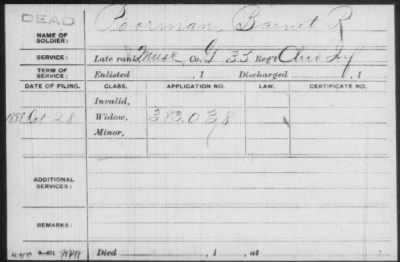 DEAD
NAME OF SOLDIER: Poorman Barnit R
SERVICE: Late rank, Muse Co. G 35 Reg't Ohio Inf
TERM OF SERVICE: Enlisted , 1 Discharged , 1
DATE OF FILING. CLASS. APPLICATION NO. LAW. CERTIFICATE NO.
Invalid,
1888 Oct 28 Widow, 383.038
Minor,
ADDITIONAL SERVICES:
REMARKS:
Died , 1 , at